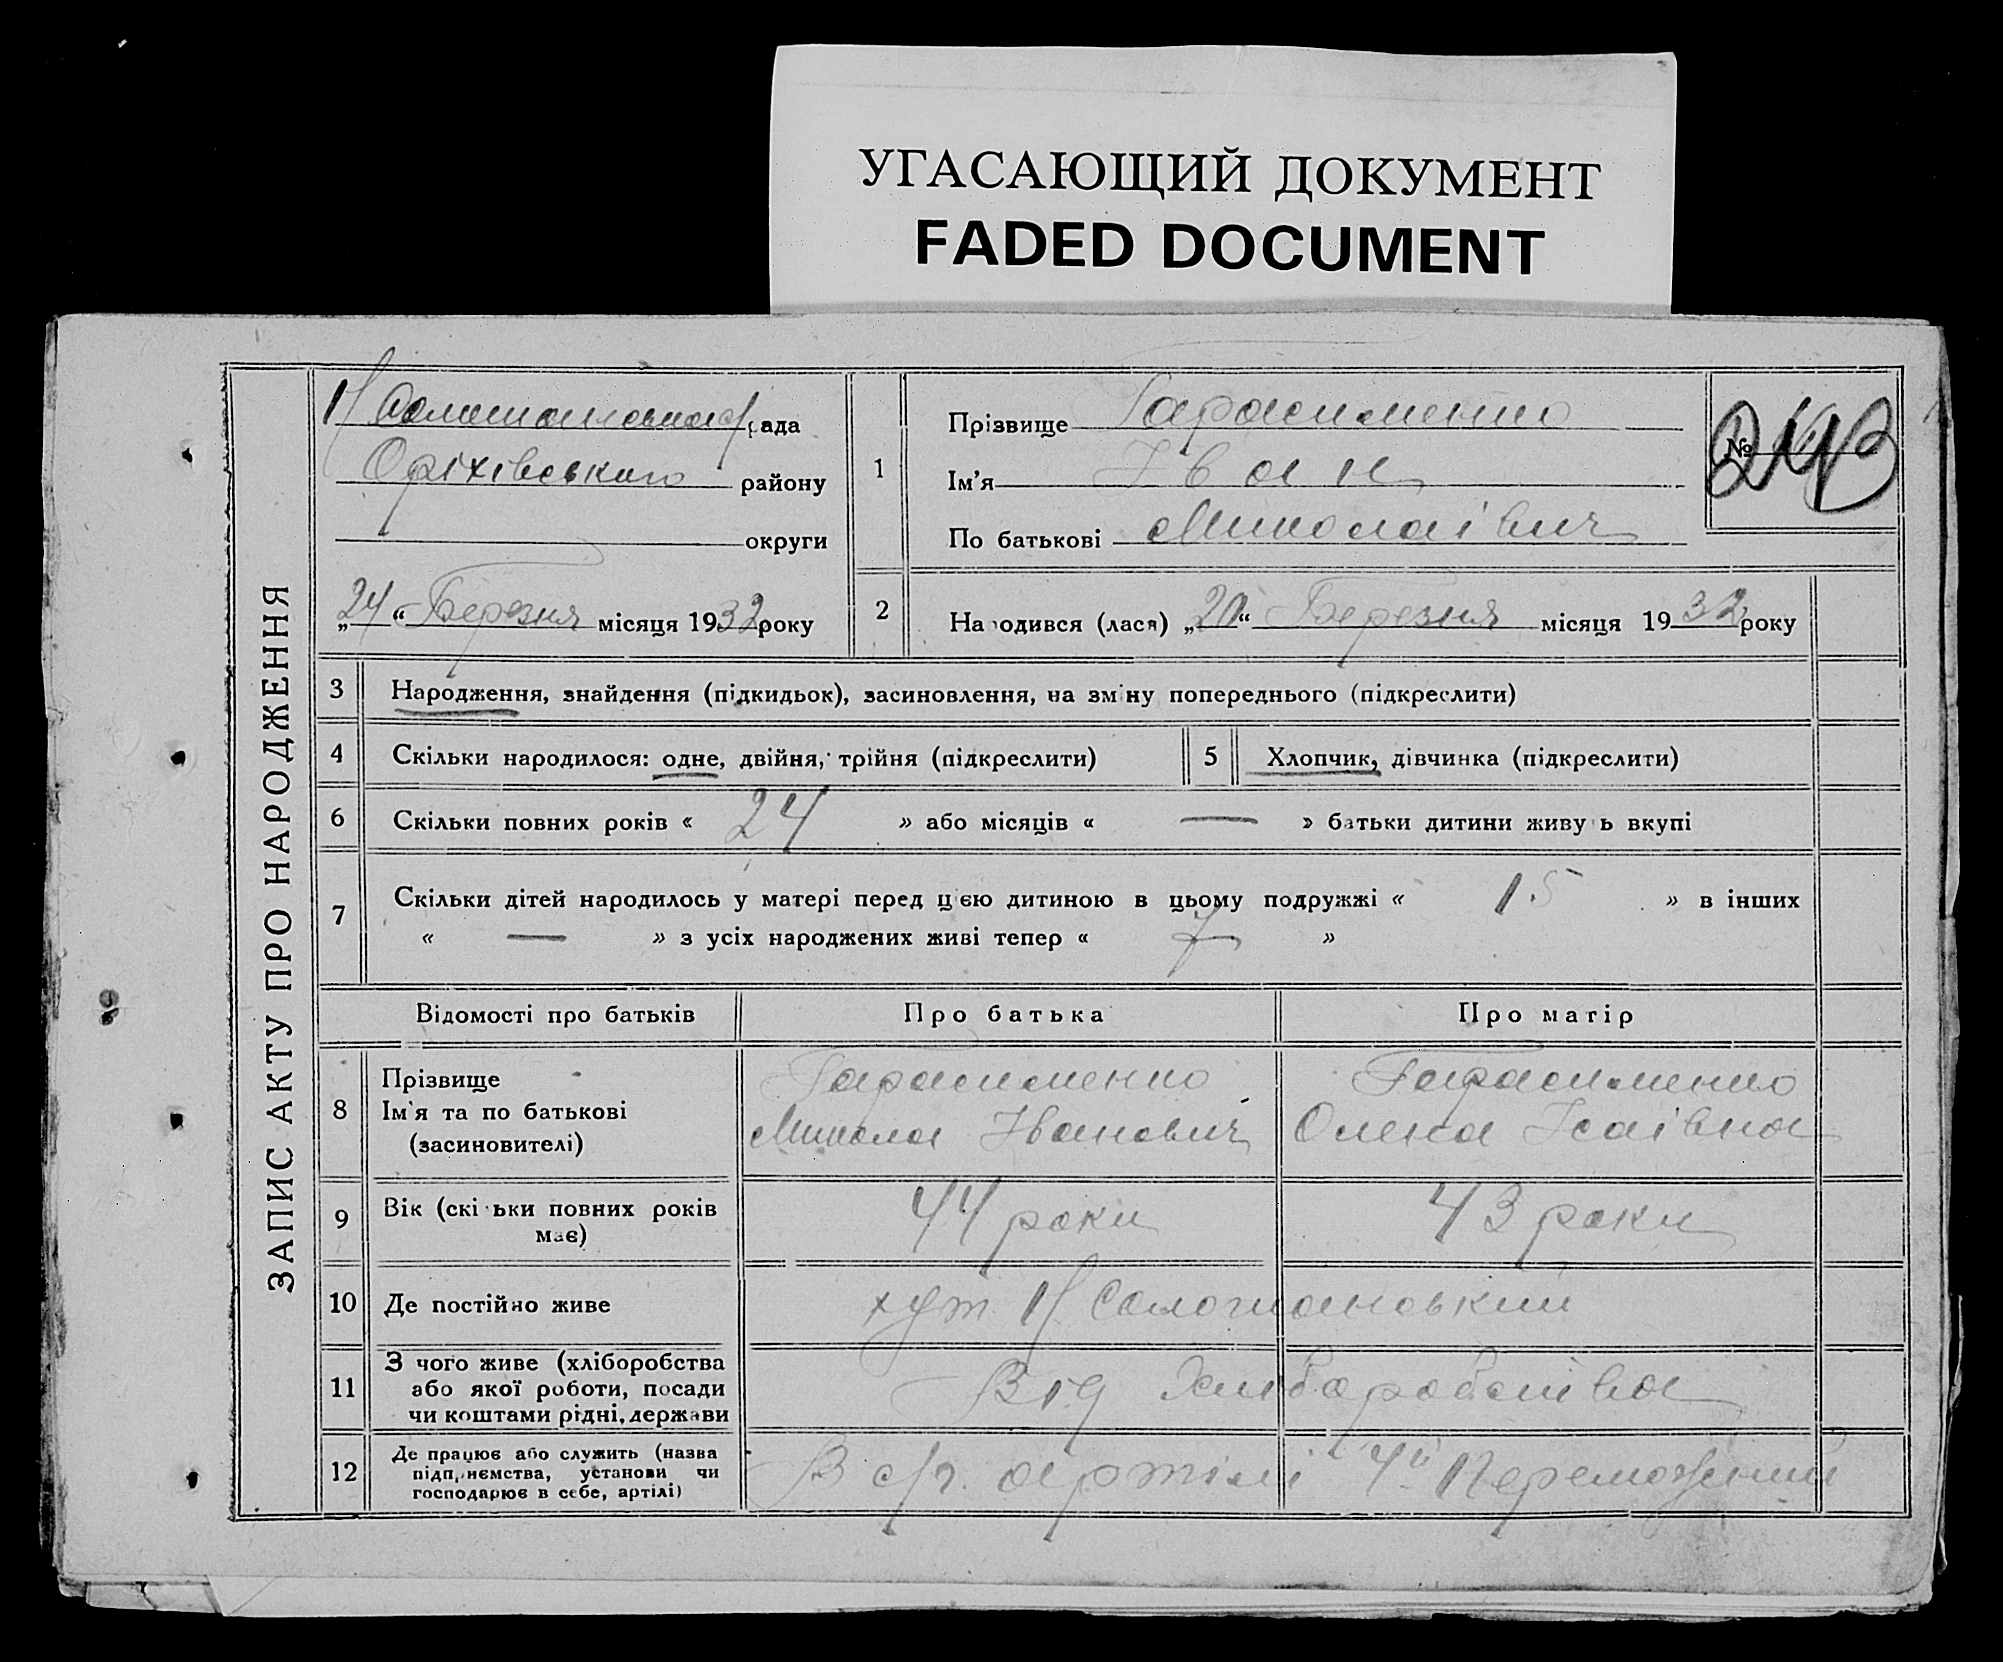 УГАСАЮЩИЙ ДОКУМЕНТ
FADED DOCUMENT
ЗАПИС АКТУ ПРО НАРОДЖЕННЯ
рада
Оріхівського району
округи
„24“ Березня місяця 1932 року
1
Прізвище Гарасименко
Ім'я Іван
По батькові Миколаївич
№
243
2
Народився (лася) „20“ Березня місяця 1932 року
3 Народження, знайдення (підкидьок), засиновлення, на зміну попереднього (підкреслити)
4 Скільки народилося: одне, двійня, трійня (підкреслити)
5 Хлопчик, дівчинка (підкреслити)
6 Скільки повних років « 24 » або місяців « — » батьки дитини живуть вкупі
7 Скільки дітей народилось у матері перед цією дитиною в цьому подружжі « 15 » в інших
« — » з усіх народжених живі тепер « 7 »
Відомості про батьків Про батька Про матір
8
Прізвище
Ім'я та по батькові
(засиновителі)
Гарасименко
Микола Іванович
Гарасименко
Олена Ісаівна
9
Вік (скільки повних років
має)
44 роки
43 роки
10 Де постійно живе
хут.
11
З чого живе (хліборобства
або якої роботи, посади
чи коштами рідні, держави
Від Хліборобства
12
Де працює або служить (назва
підприємства, установи чи
господарює в себе, артілі)
В с/г. артілі